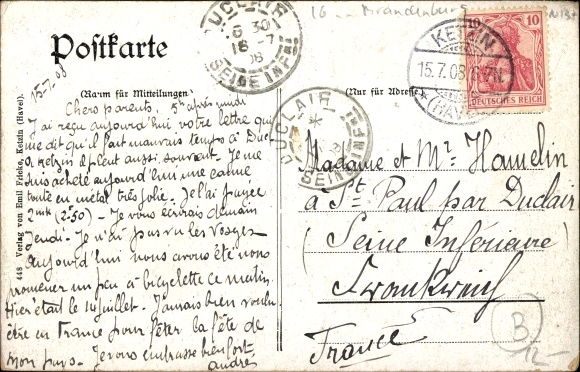 Postkarte
(Raum für Mitteilungen)
(Nur für Adresse)
448 Verlag von Emil Fricke, Ketzin (Havel).
15.7.08
Chers parents, 5h après midi
J'ai reçu aujourd'hui votre lettre qui
me dit qu'il fait mauvais temps à Duc
à Ketzin il pleut aussi souvent. Je me
suis acheté aujourd'hui une canne
toute en métal très jolie. Je l'ai payée
2 mk (2.50) - Je vous écrirais demain
Jeudi - Je n'ai pas vu les Vosges
aujourd'hui nous avons été nous
promener un peu à bicyclette ce matin.
Hier était le 14 juillet. J'aurais bien voulu
être en France pour fêter la fête de
mon pays. Je vous embrasse bien fort
andré
16 Brandenburg
DUCLAIR
6 30
16 -7
08
SEINE INFRE
DUCLAIR
SEINE INFRE
KETZIN
15.7.08.6-7N.
*(HAVEL)
10
10
DEUTSCHES REICH
Madame et Mr Hamelin
à St Paul par Duclair
(Seine Inférieure)
Frankreich
France
B
12-